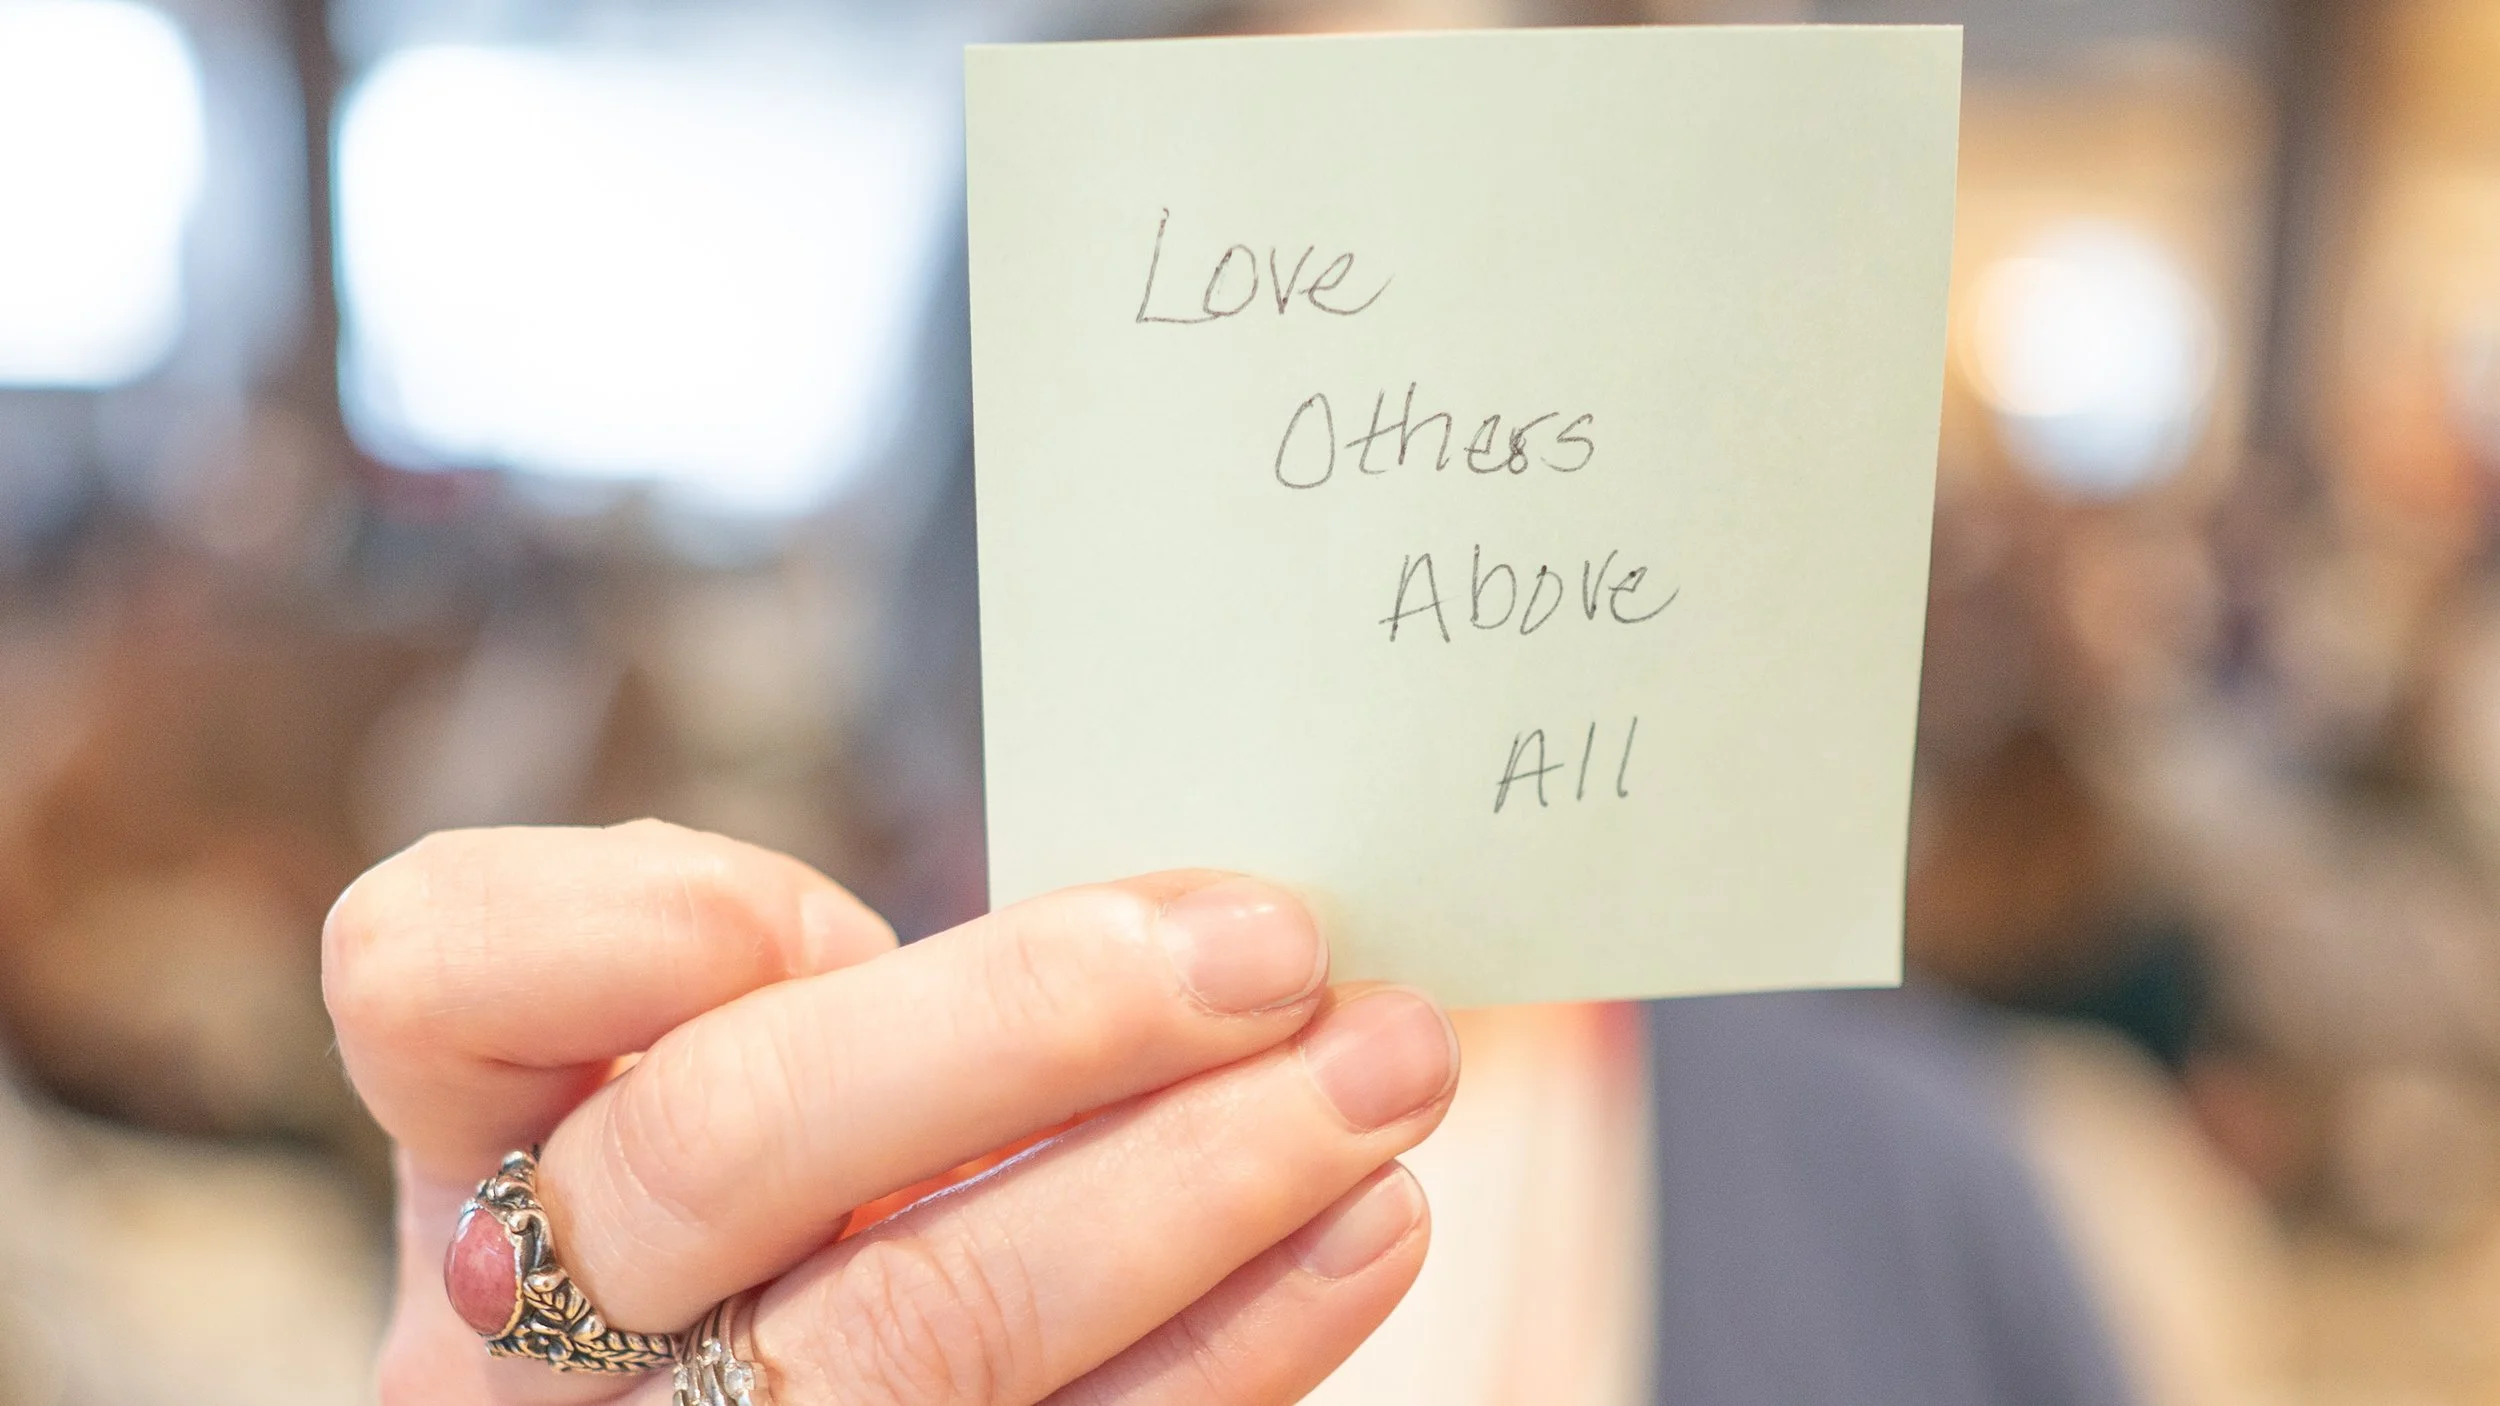 Love
Others
Above
All